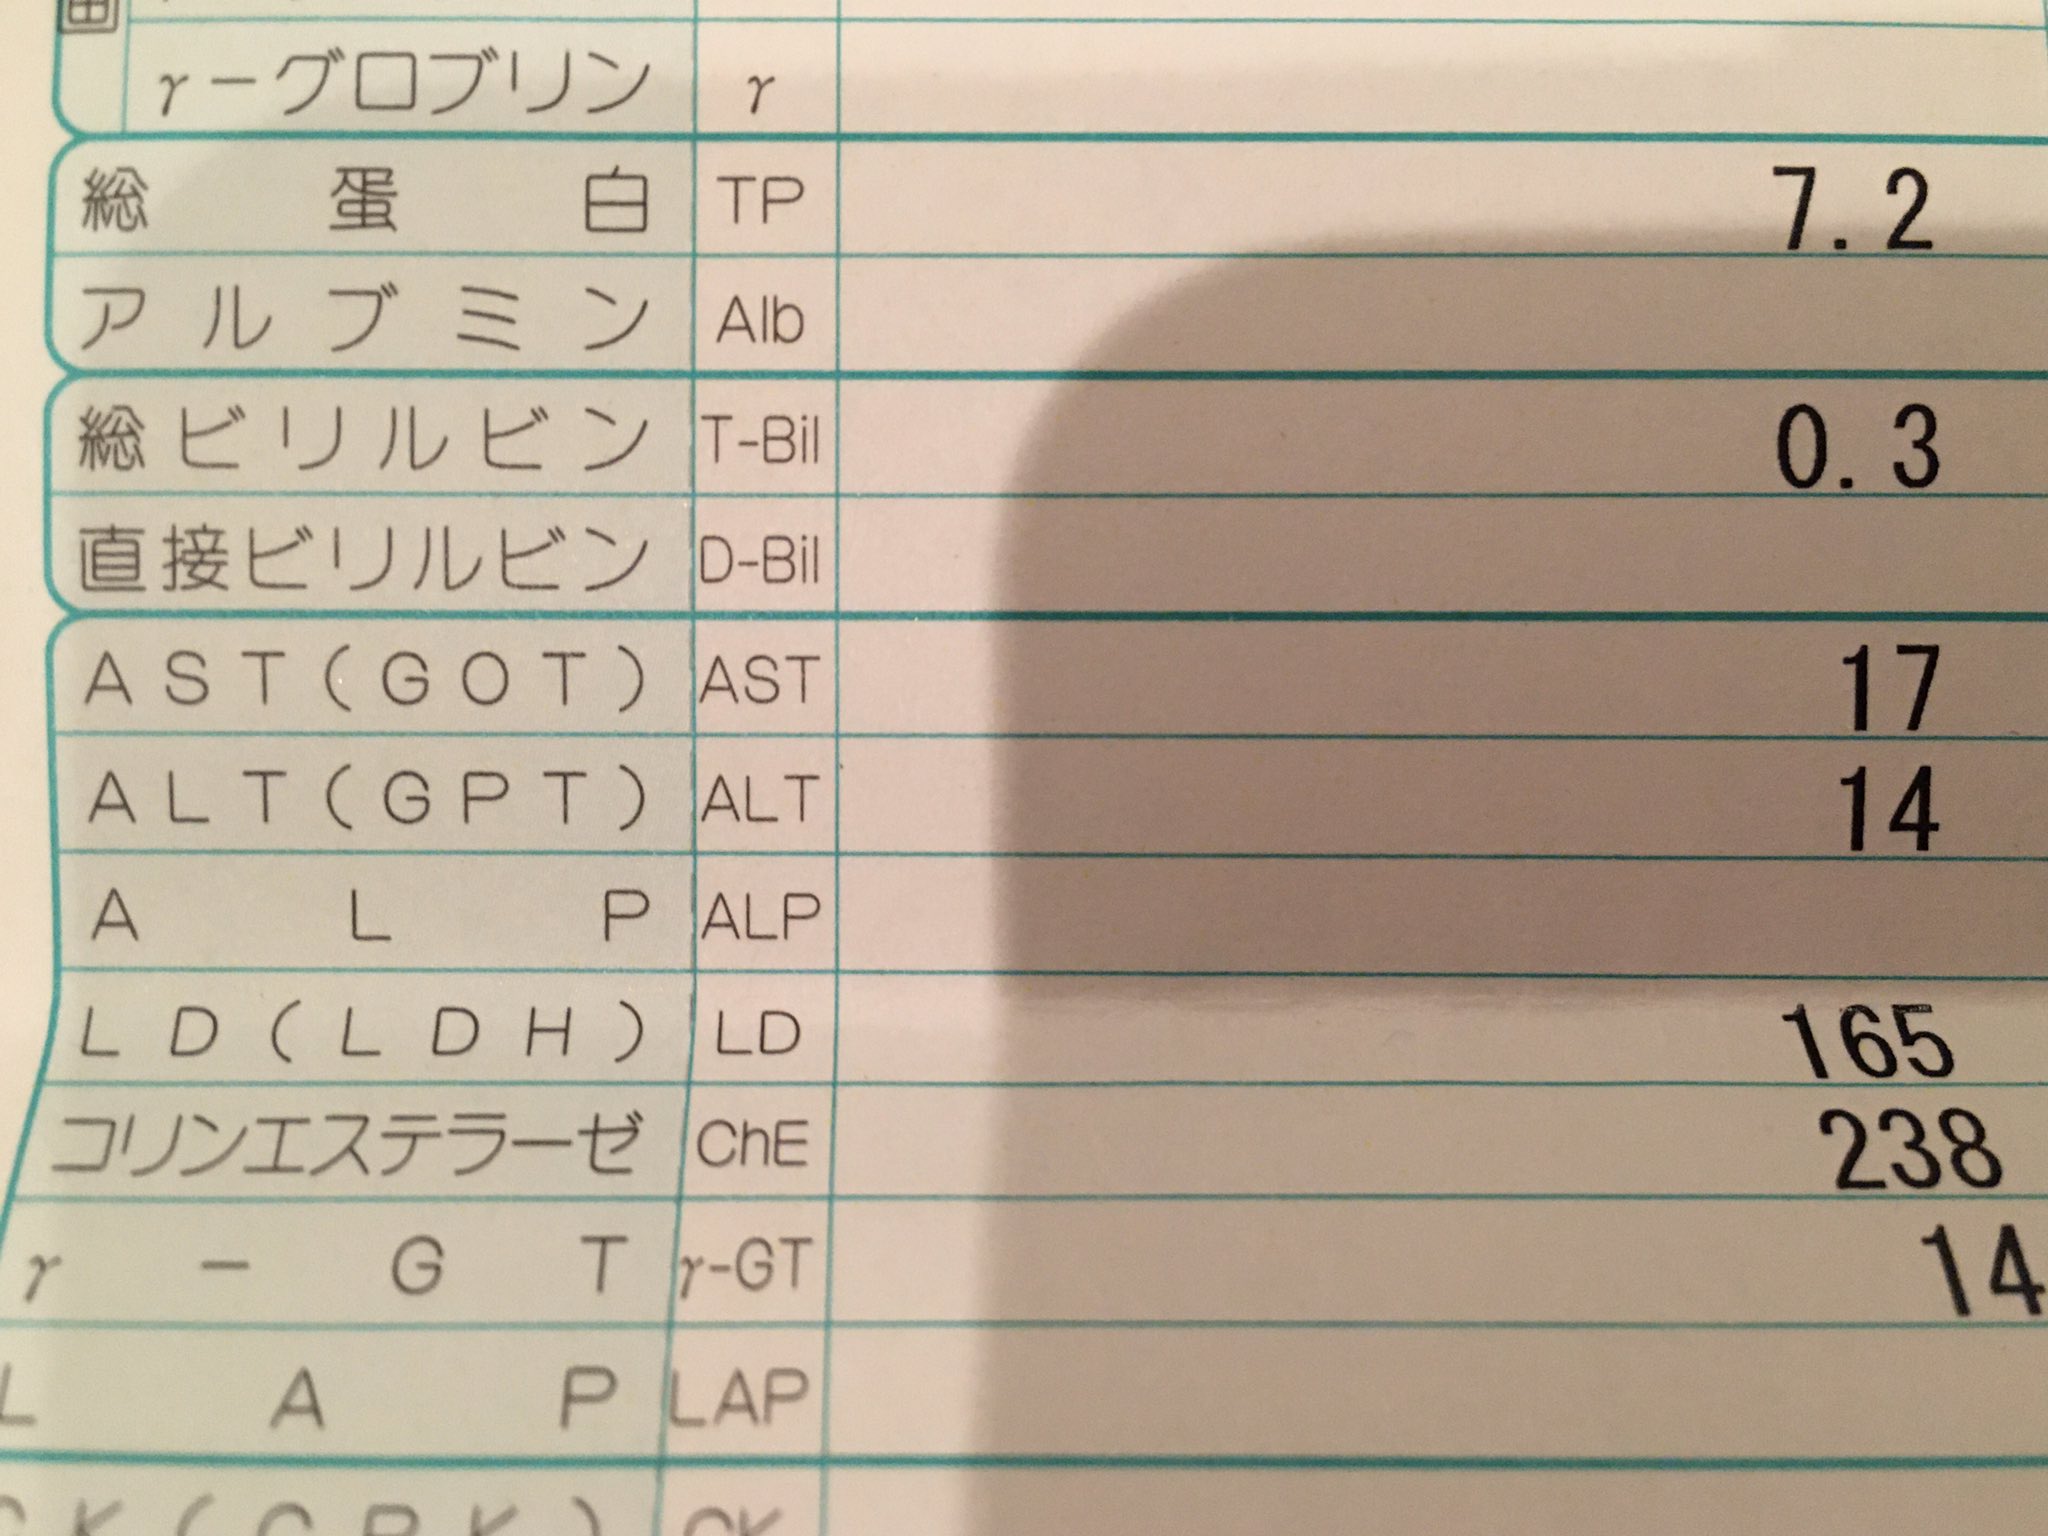 γ-グロブリン γ
総蛋白 TP 7.2
アルブミン Alb
総ビリルビン T-Bil 0.3
直接ビリルビン D-Bil
AST(GOT) AST 17
ALT(GPT) ALT 14
ALP ALP
LD(LDH) LD 165
コリンエステラーゼ ChE 238
γ-GT γ-GT 14
LAP LAP
CK(CPK) CK